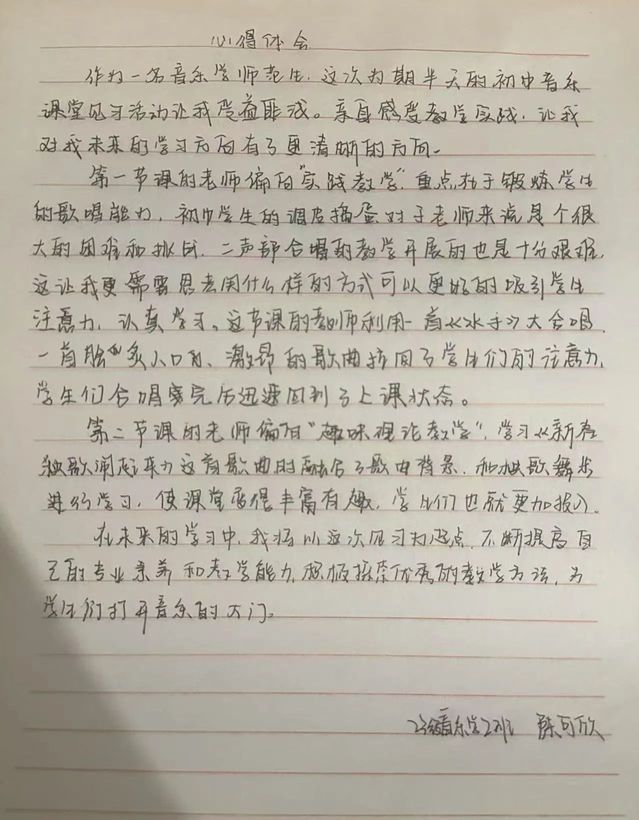 心得体会
作为一名音乐学师范生，这次为期半天的初中音乐
课堂见习活动让我受益匪浅。亲身感受教学实践，让我
对我未来的学习方向有了更清晰的方向。
第一节课的老师偏向"实践教学"，重点在于锻炼学生
的歌唱能力，初中学生的调皮捣蛋对于老师来说是个很
大的困难和挑战，二声部合唱的教学开展的也是十分艰难，
这让我更需要思考用什么样的方式可以更好的吸引学生
注意力，认真学习。这节课的老师利用一首《水手》大合唱，
一首脍炙人口的、激昂的歌曲拉回了学生们的注意力，
学生们合唱完后迅速回到了上课状态。
第二节课的老师偏向"趣味理论教学"，学习《新春
秧歌闹起来》这首歌曲时融合了歌曲背景，和秧歌舞步
进行学习，使课堂变得丰富有趣，学生们也就更加投入。
在未来的学习中，我将以这次见习为起点，不断提高自
己的专业素养和教学能力，积极探索优秀的教学方法，为
学生们打开音乐的大门。
音乐学2班 陈可欣